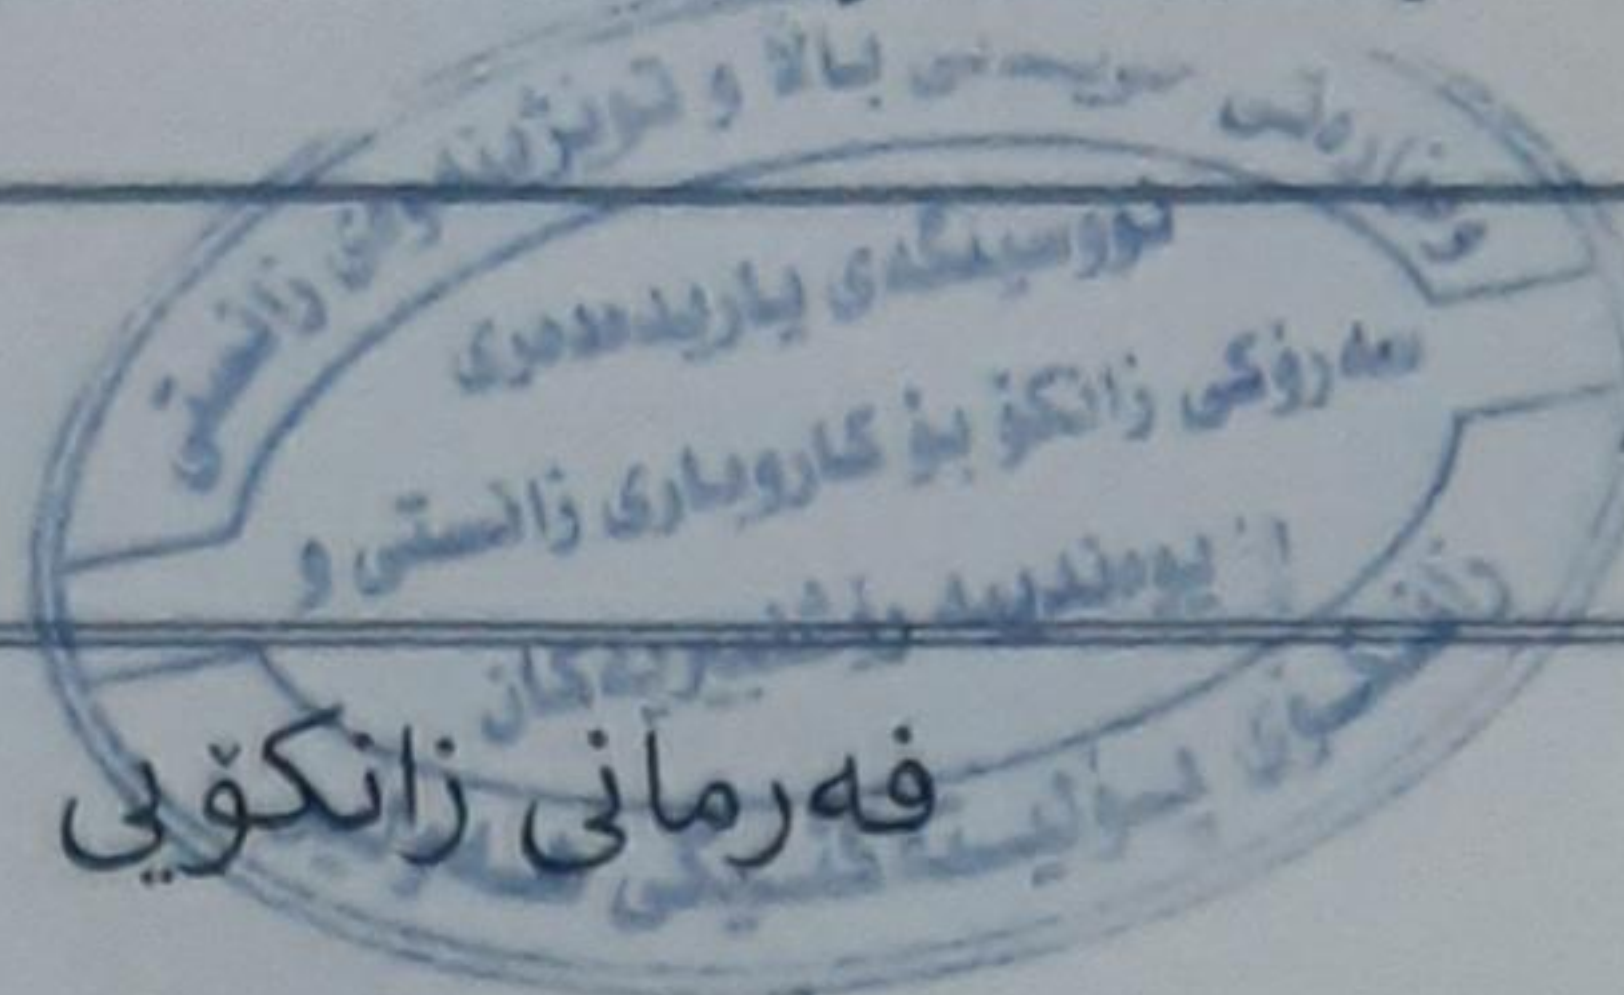 وەزارەتی خوێندنی باڵا و توێژینەوەی زانستی
نووسینگەی یاریدەدەری
سەرۆکی زانکۆ بۆ کاروباری زانستی و
پەیوەندییە ڕۆشنبیریەکان
زانکۆی پۆلیتەکنیکی
فەرمانی زانکۆیی